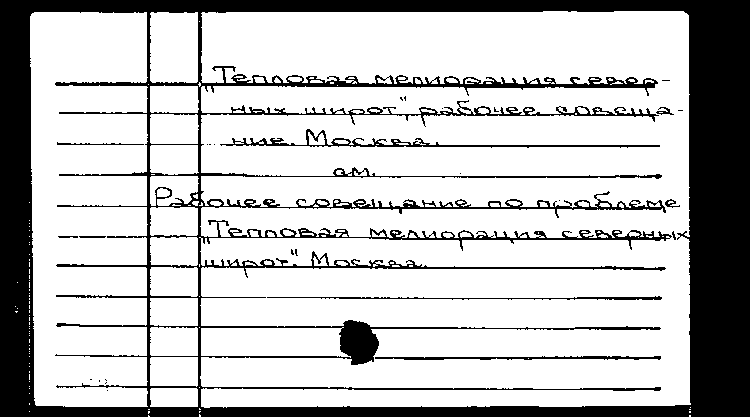 „Тепловая мелиорация север-
ных широт", рабочее совеща-
ние. Москва.
см.
Рабочее совещание по проблеме
„Тепловая мелиорация северных
широт". Москва.